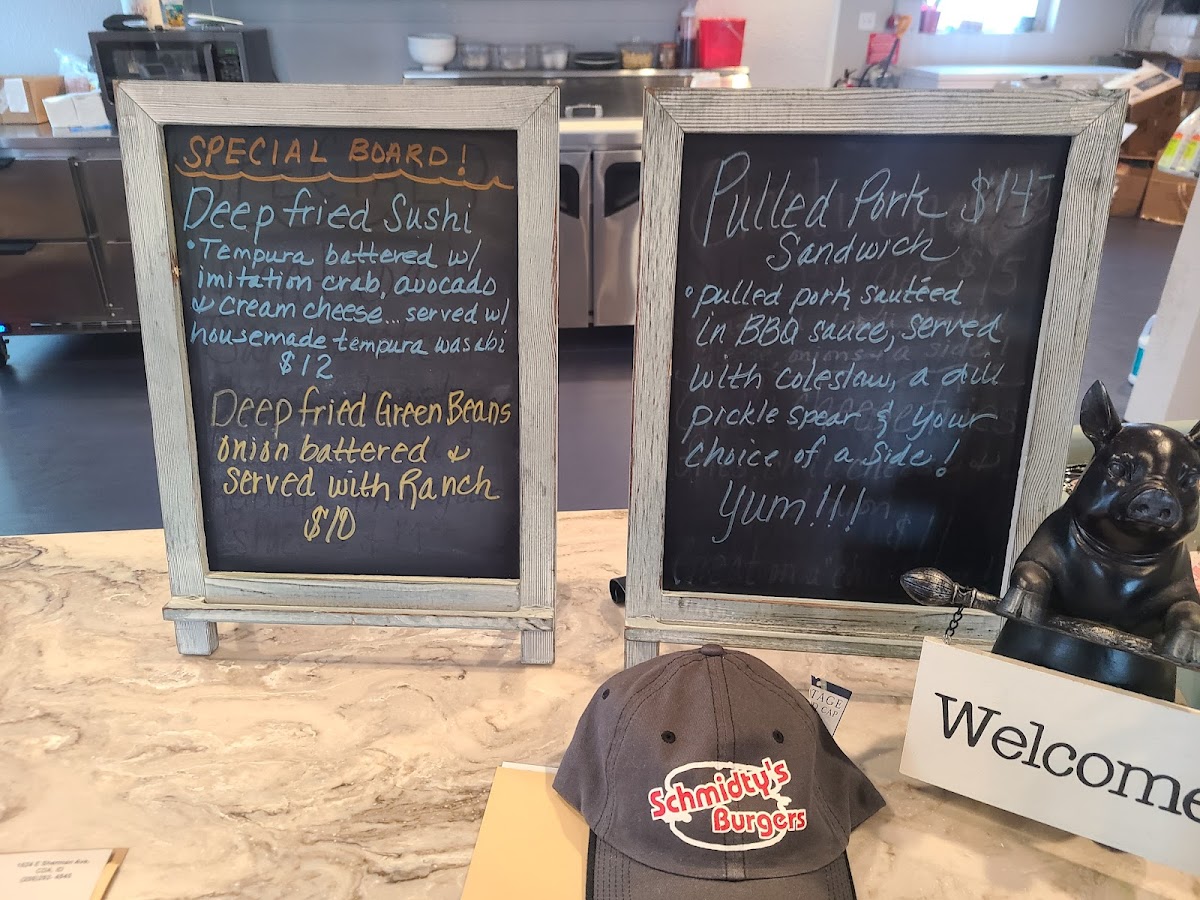 SPECIAL BOARD!
Deep fried Sushi
• Tempura battered w/
imitation crab, avocado
& cream cheese... served w/
housemade tempura wasabi
$12
Deep fried Green Beans
onion battered &
served with Ranch
$10
Pulled Pork $14-
Sandwich
• pulled pork sautéed
in BBQ sauce, served
with coleslaw, a dill
pickle spear & your
choice of a side!
Yum!!!
TAGE
CAP
Schmidty's
Burgers
Welcome
CDA, ID